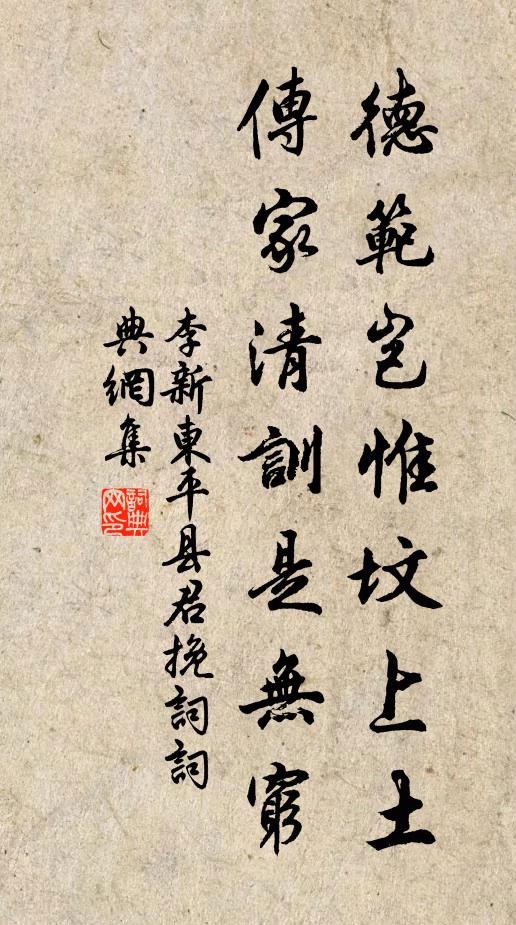 德範豈惟坟上土
傳家清訓是無窮
李新東平县君挽詞詞
典網集
詞典网印